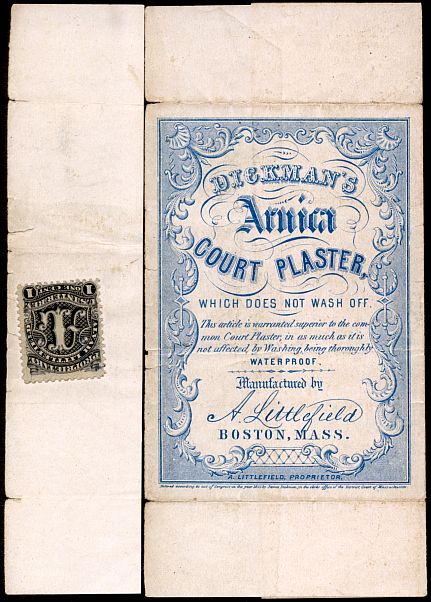 DICKMAN'S
Arnica
COURT PLASTER,
WHICH DOES NOT WASH OFF.
This article is warranted superior to the com-
mon Court Plaster, in as much as it is
not affected by Washing, being thoroughly
WATERPROOF.
Manufactured by
A. Littlefield
BOSTON, MASS.
A. LITTLEFIELD, PROPRIETOR.
Entered according to act of Congress in the year by James Dickman, in the clerks office of the District Court of Massachusetts
1 ONE CENT 1